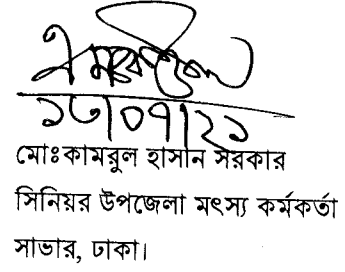 ১৮/০৭/২১
মোঃকামরুল হাসান সরকার
সিনিয়র উপজেলা মৎস্য কর্মকর্তা
সাভার, ঢাকা।